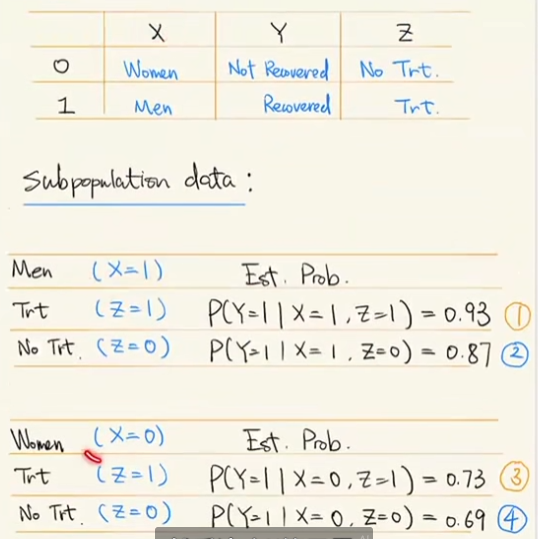 X Y Z
0 Women Not Recovered No Trt.
1 Men Recovered Trt.
Subpopulation data :
Men (X=1) Est. Prob.
Trt (Z=1) P(Y=1 | X=1, Z=1) = 0.93 ①
No Trt. (Z=0) P(Y=1 | X=1, Z=0) = 0.87 ②
Women (X=0) Est. Prob.
Trt (Z=1) P(Y=1 | X=0, Z=1) = 0.73 ③
No Trt. (Z=0) P(Y=1 | X=0, Z=0) = 0.69 ④